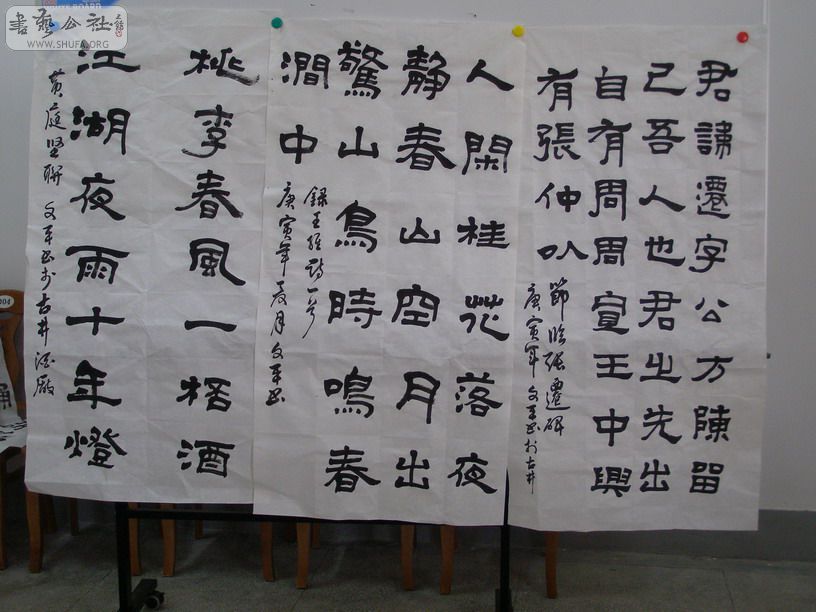 君諱遷字公方陳留
己吾人也君之先出
自有周周宣王中興
有張仲以
節临張遷碑
庚寅年文平书於古井
人閑桂花落夜
静春山空月出
驚山鳥時鳴春
澗中
録王維詩一首
庚寅年夏月文平书
桃李春風一桮酒
江湖夜雨十年燈
黄庭坚联文平书於古井酒廠
書藝公社
WWW.SHUFA.ORG